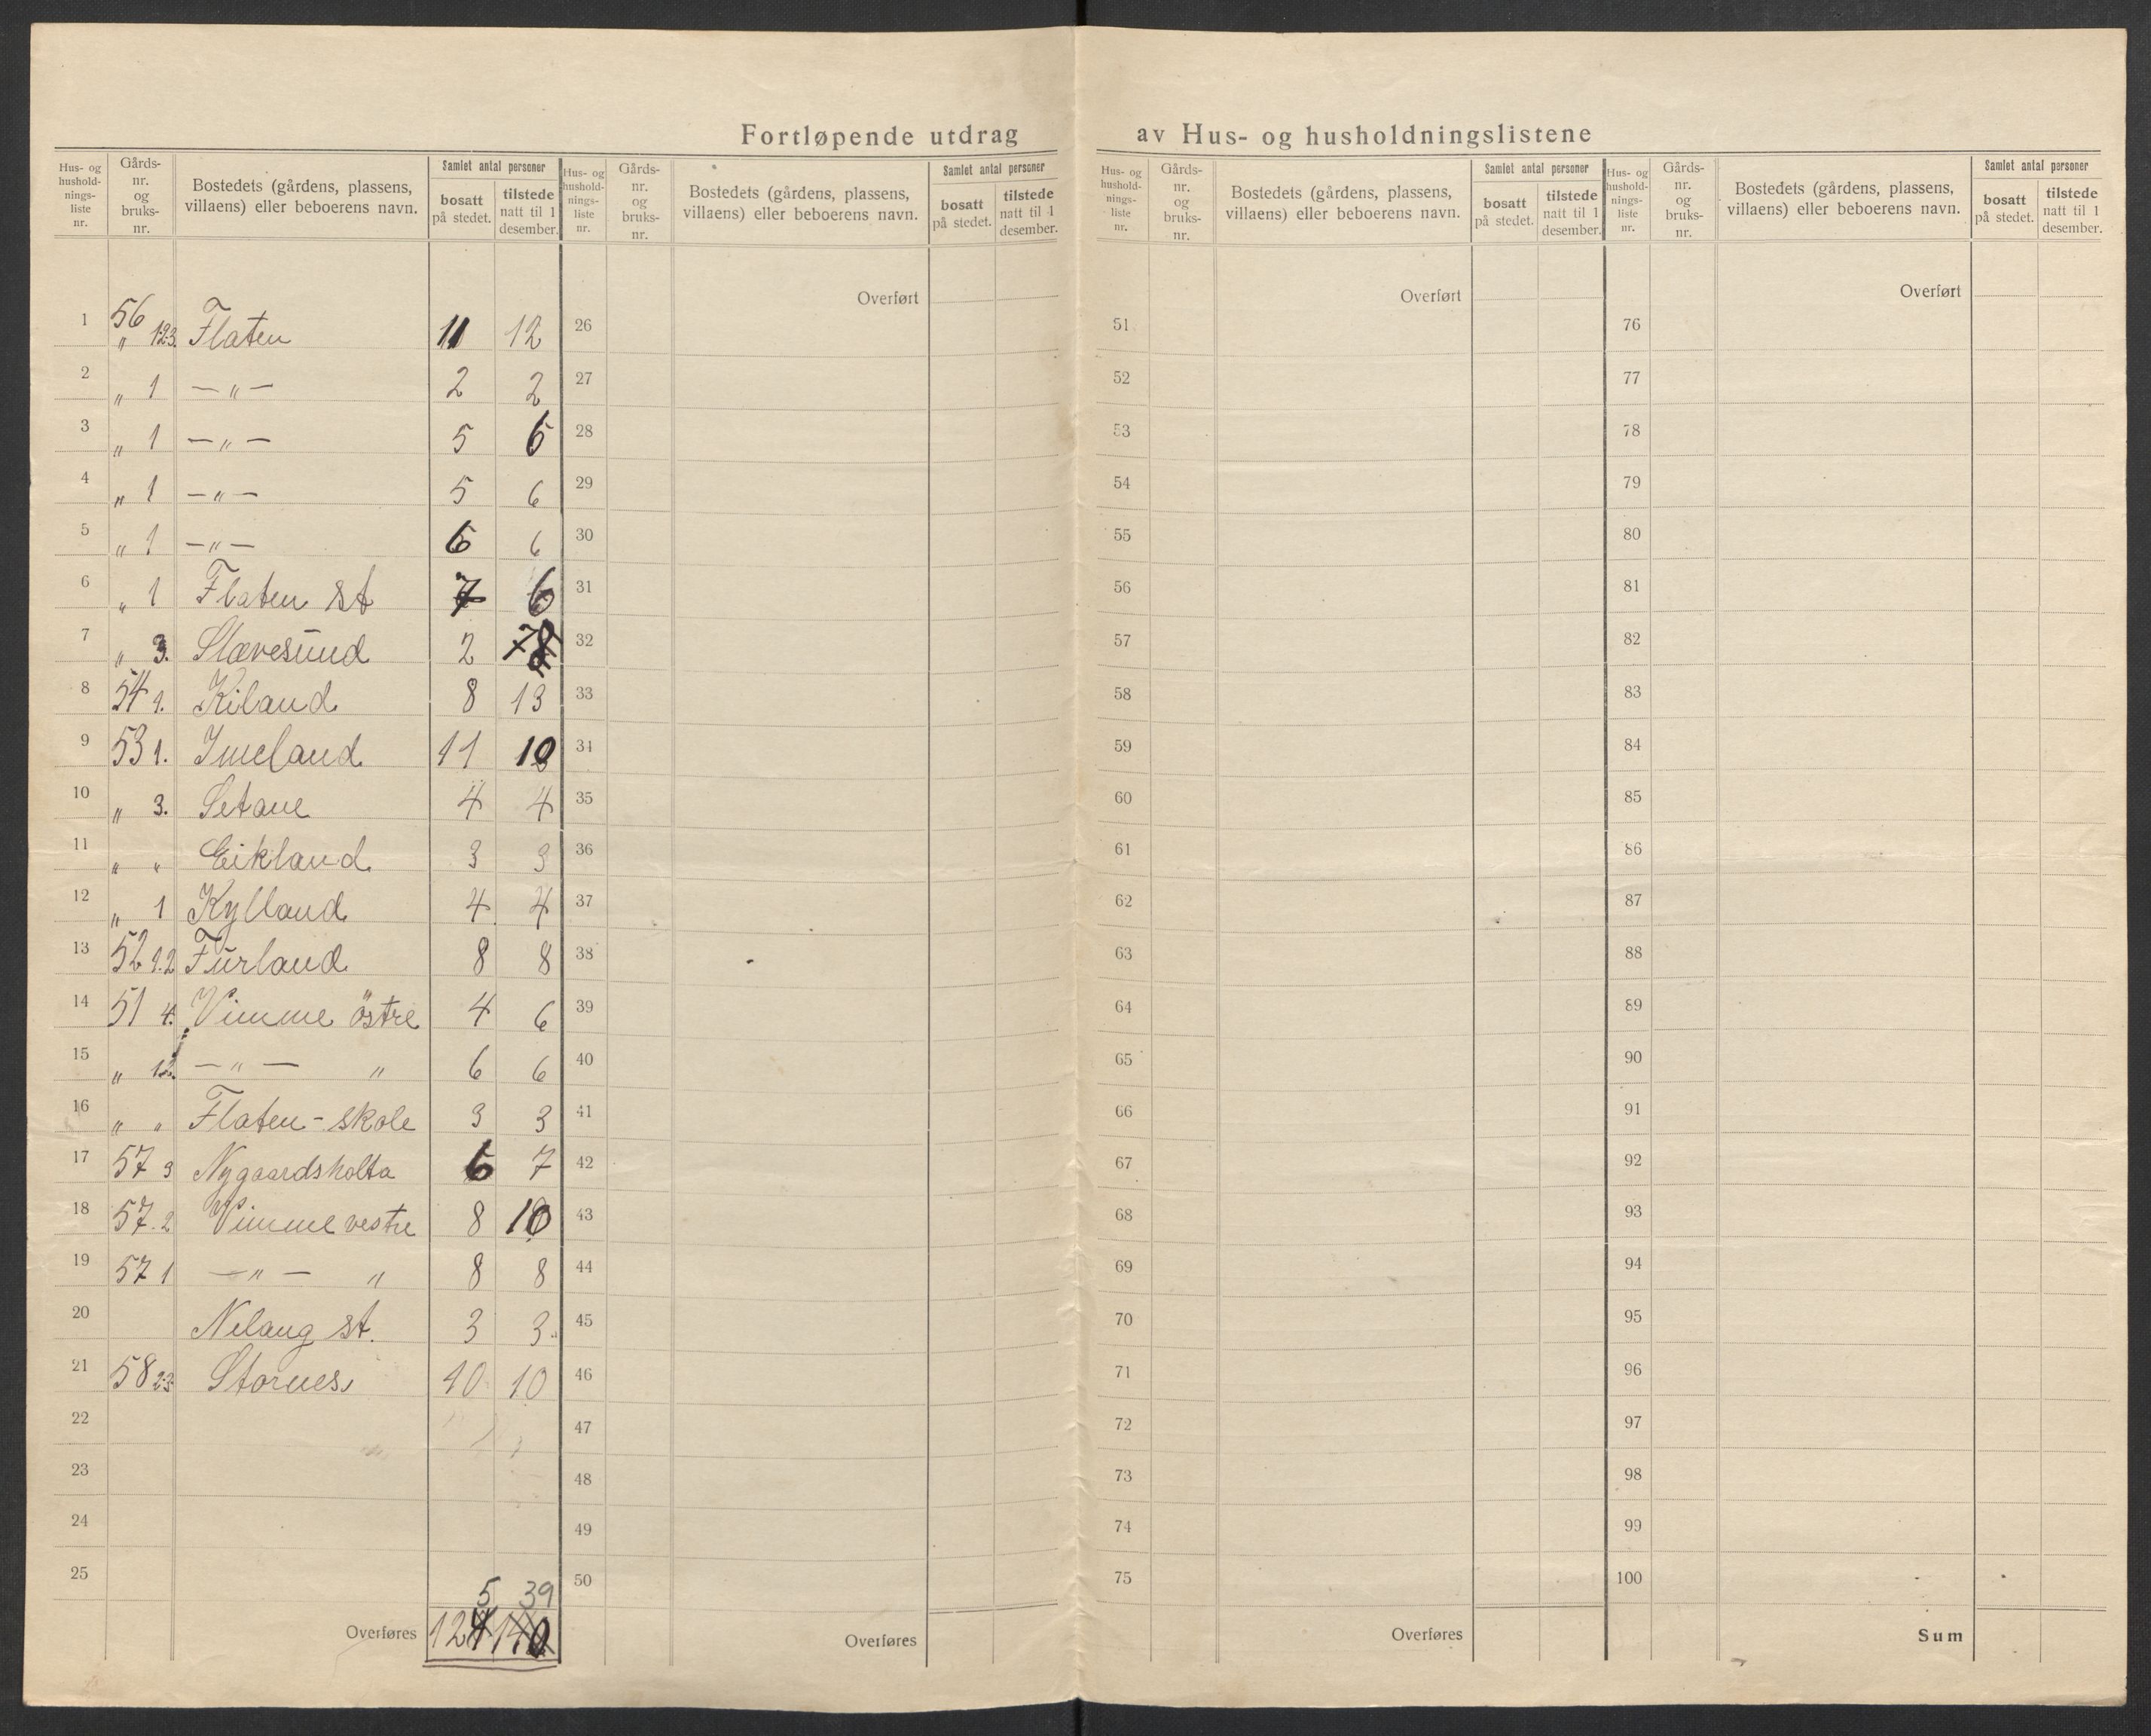 Fortløpende utdrag av Hus- og husholdningslistene
Hus- og hushold-nings-liste nr. Gårds-nr. og bruks-nr. Bostedets (gårdens, plassens, villaens) eller beboerens navn. Samlet antal personer bosatt på stedet. tilstede natt til 1 desember.
Hus- og hushold-nings-liste nr. Gårds-nr. og bruks-nr. Bostedets (gårdens, plassens, villaens) eller beboerens navn. Samlet antal personer bosatt på stedet. tilstede natt til 1 desember.
Hus- og hushold-nings-liste nr. Gårds-nr. og bruks-nr. Bostedets (gårdens, plassens, villaens) eller beboerens navn. Samlet antal personer bosatt på stedet. tilstede natt til 1 desember.
Hus- og hushold-nings-liste nr. Gårds-nr. og bruks-nr. Bostedets (gårdens, plassens, villaens) eller beboerens navn. Samlet antal personer bosatt på stedet. tilstede natt til 1 desember.
Overført Overført Overført
1 56 " 1.2.3. Flaten 11 12 26 51 76
2 " 1 — " — 2 2 27 52 77
3 " 1 — " — 5 6 28 53 78
4 " 1 — " — 5 6 29 54 79
5 " 1 — " — 6 6 30 55 80
6 " 1 Flaten st 7 6 31 56 81
7 " 3. Slævesund 2 32 57 82
8 54 1. Kiland 8 13 33 58 83
9 53 1. Imeland 11 10 34 59 84
10 " 3. Setane 4 4 35 60 85
11 " " Eikland 3 3 36 61 86
12 " 1 Kylland 4 4 37 62 87
13 52 1.2 Furland 8 8 38 63 88
14 51 4. Vimme östre 4 6 39 64 89
15 " — " — " 6 6 40 65 90
16 " " Flaten-skole 3 3 41 66 91
17 57 3 Nygaardsholta 6 7 42 67 92
18 57. 2 Vimme vestre 8 10 43 68 93
19 57 1 — " — " 8 8 44 69 94
20 Nelaug st. 3 3 45 70 95
21 58 2.3 Stornes 10 10 46 71 96
22 47 72 97
23 48 73 98
24 49 74 99
25 50 75 100
5 39
Overføres 124 140 Overføres Overføres Sum